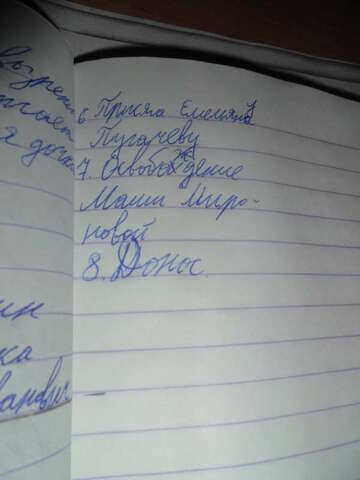 6 Присяга Емельяну
Пугачеву
7. Освобождение
Маши Миро-
новой
8. Донос
ин
ка